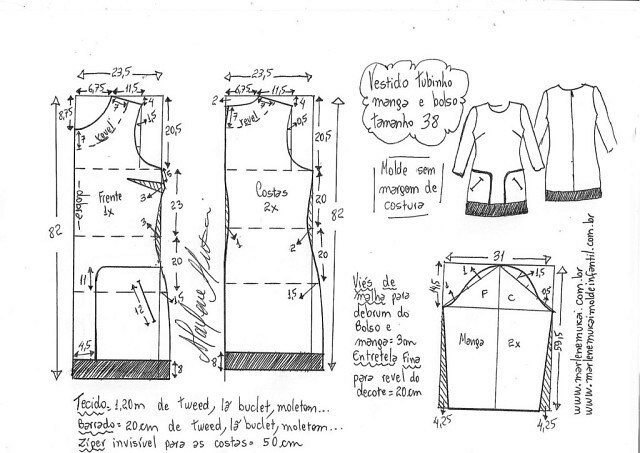 23,5
6,75 11,5
8,75
7
7
revel
4
1,5
20,5
82
6
3
Frente
1x
dobra
23
3
20
11
12
1,5
4,5
8
23,5
6,75 11,5
2
7
revel
4
0,5
20,5
82
Costas
2x
20
1
2
20
1,5
8
Marlene Mukai
Vestido tubinho
manga e bolso
tamanho 38
Molde sem
margem de
costura
Viés de
malha para
debrum do
Bolso e
manga = 3m
Entretela Fina
para revel do
decote = 20cm
31
14,5
1
1,5
0,5
F C
Manga 2x
59,5
4,25 4,25
www.marlenemukai.com.br
www.marlenemukaimoldeinfantil.com.br
Tecido = 1,20m de tweed, lã buclet, moletom...
Barrado = 20cm de tweed, lã buclet, moletom...
Zíper invisível para as costas = 50cm